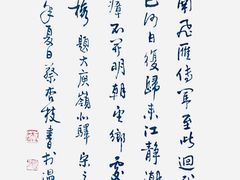 南飛雁傳聞至此迴
已何日復歸來江靜潮
瘴不開明朝望鄉處
梅 題大庾嶺北驛 宋之
年夏日蔡杏枝書於溫